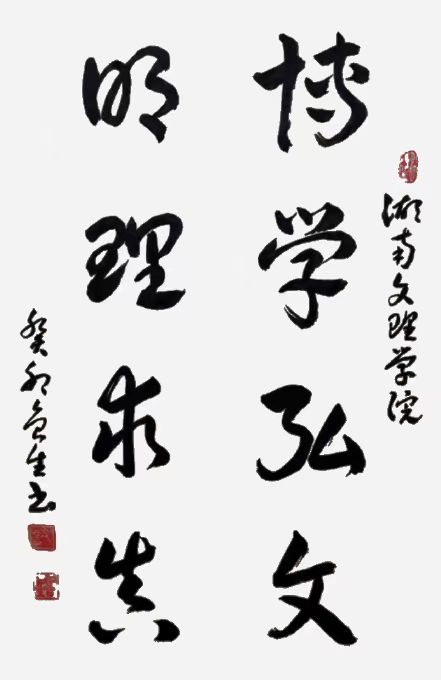 湖南文理学院
博学弘文
明理求真
癸卯生书